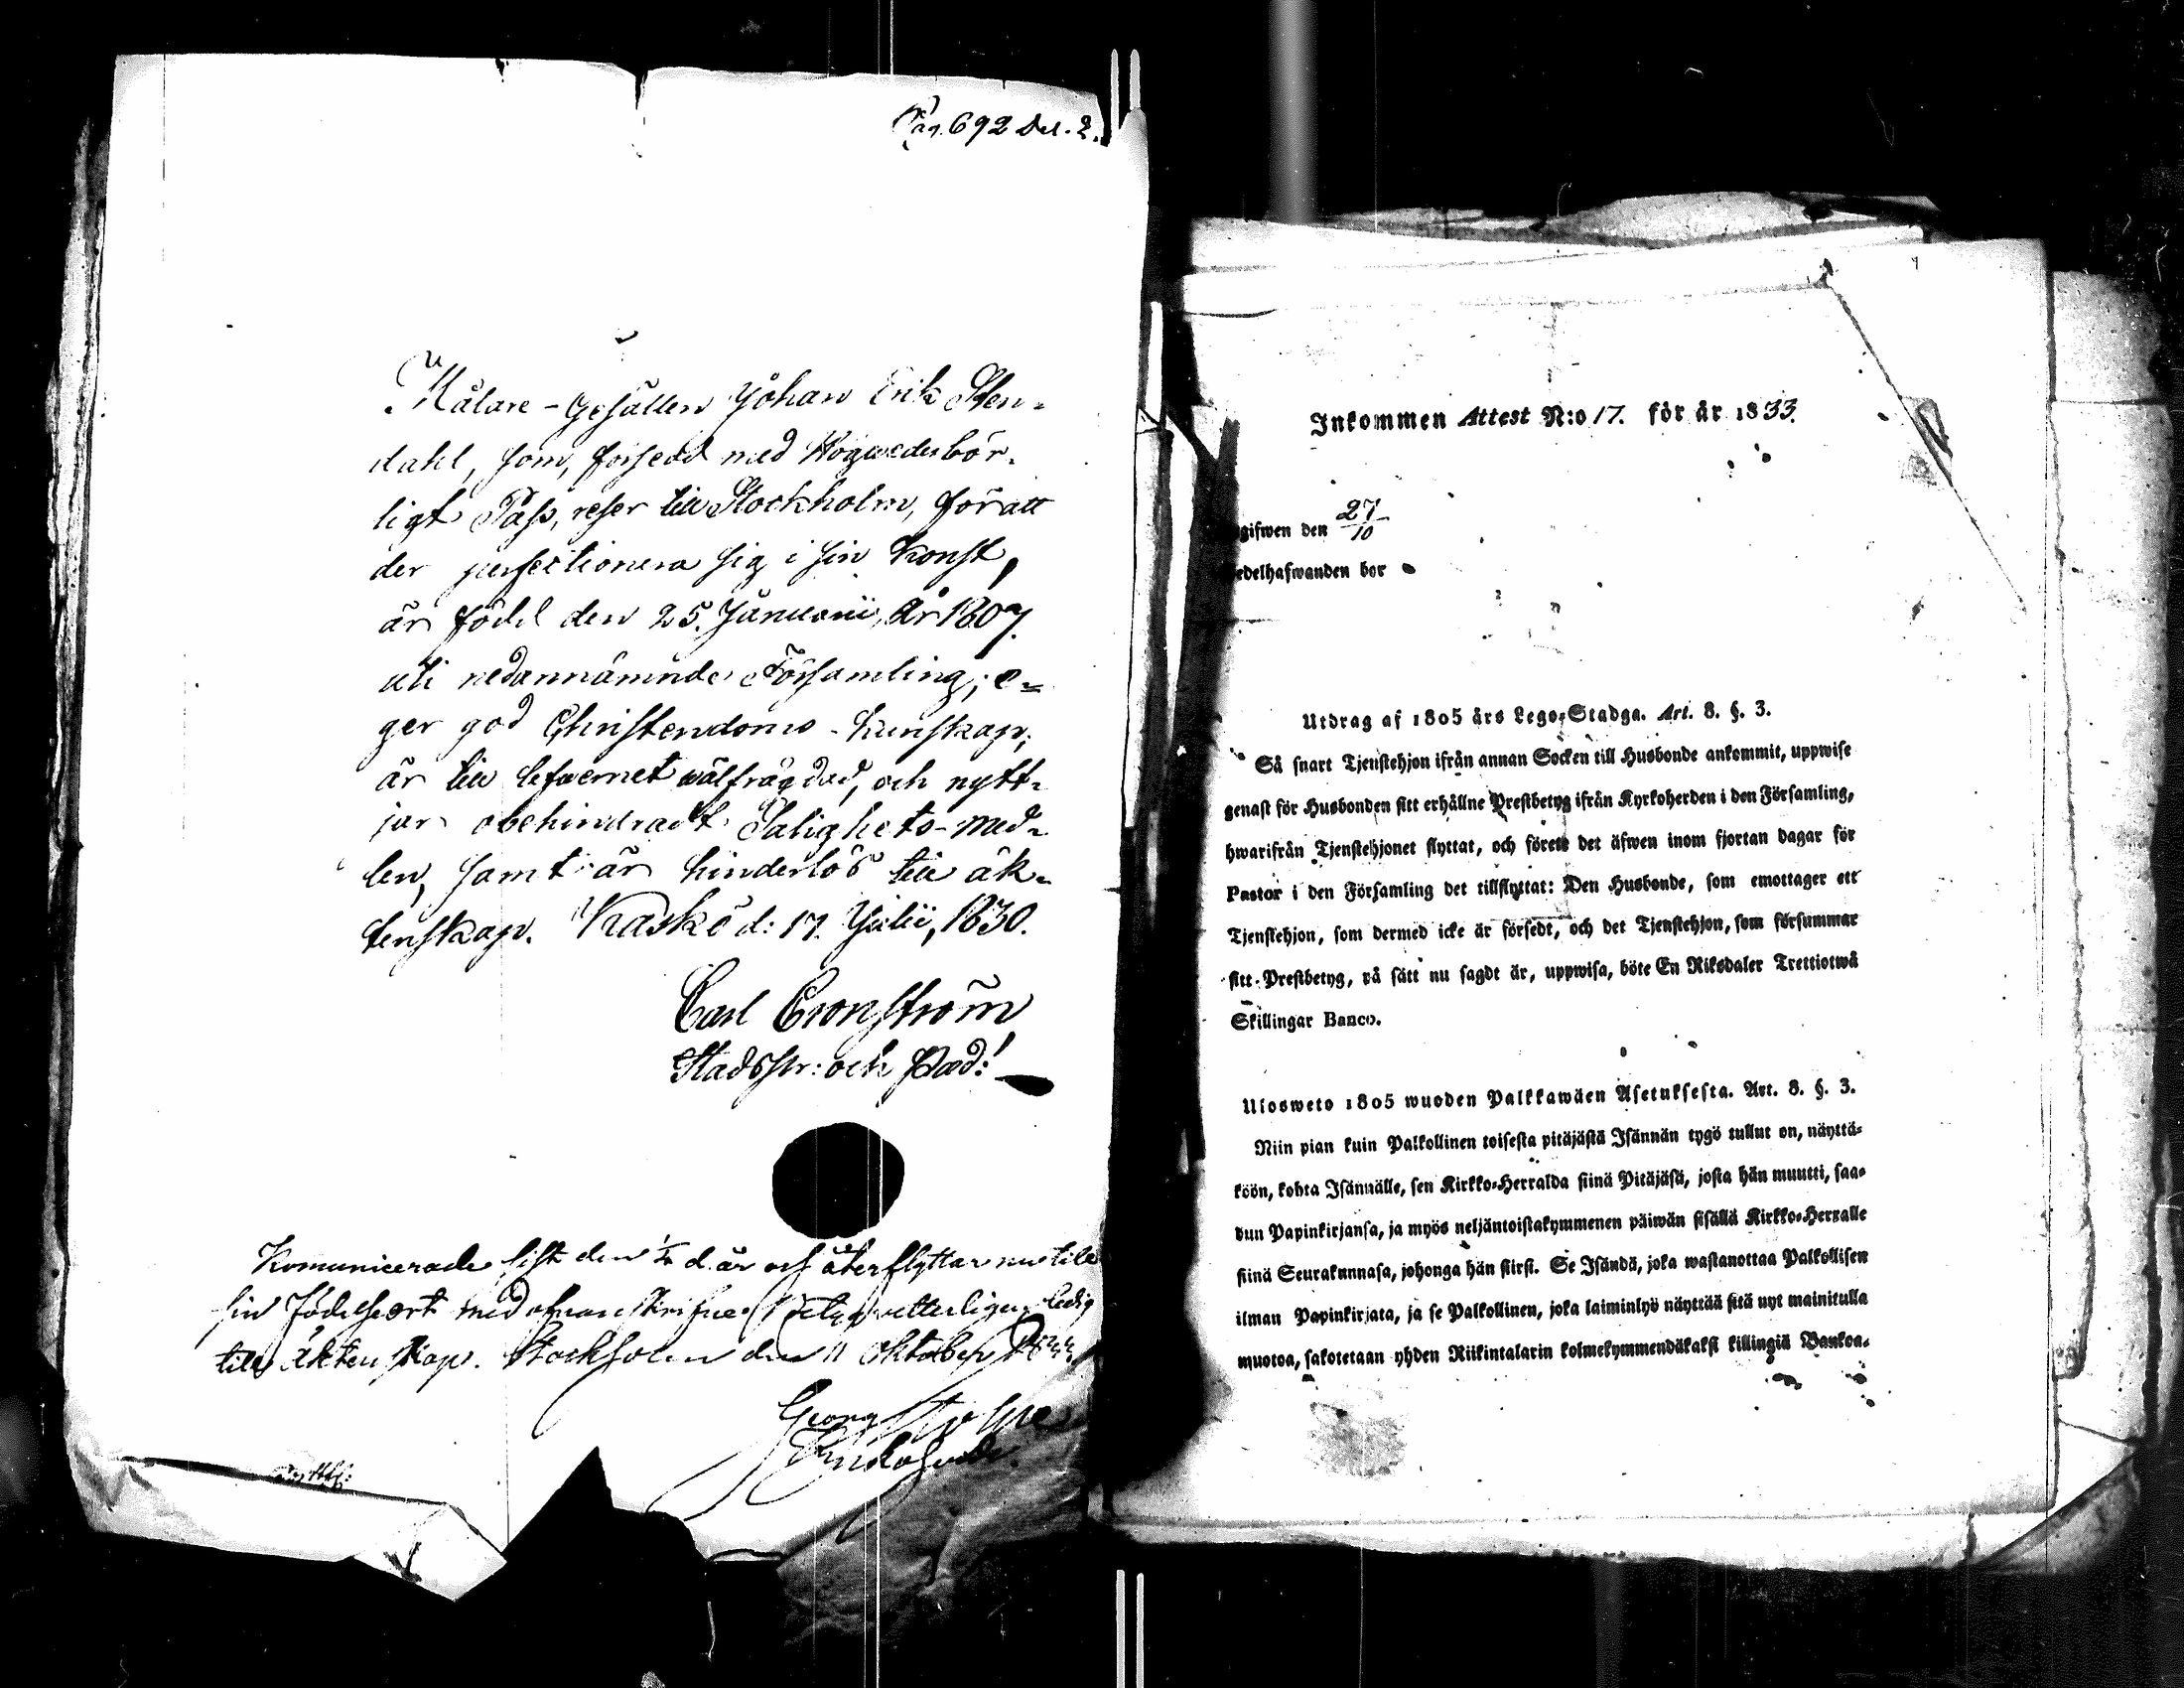 Pag. 692 Del. 2.
Målare-Gesällen Johan Erik Sten-
dahl, som, försedd med Högwederbör-
ligt Pass, reser till Stockholm, för att
der perfectionera sig i sin Konst,
är född den 25. Januarii, År 1807.
uti nedannämnde Församling; e-
ger god Christendoms-kunskap;
är till lefwernet wälfrägdad, och nytt-
jar obehindradt Salighets-med-
len, samt är hinderlös till äk-
tenskap. Kaskö d: 17. Julii, 1830.
Carl Cronström
Stadspr: och Pæd:
Komunicerade sist den d. år och återflyttar nu till
sin födelseort med ofvanskrifne Betyg ledig
till Äktenskap. Stockholm den 11 Oktober 1833
Georg
Inkommen Attest N:o 17. för år 1833.
gifwen den 27/10
edelhafwanden bor
Utdrag af 1805 års Lego-Stadga. Art. 8. §. 3.
Så snart Tjenstehjon ifrån annan Socken till Husbonde ankommit, uppwise
genast för Husbonden sitt erhållne Prestbetyg ifrån Kyrkoherden i den Församling,
hwarifrån Tjenstehjonet flyttat, och förete det äfwen inom fjortan dagar för
Pastor i den Församling det tillflyttat: Den Husbonde, som emottager ett
Tjenstehjon, som dermed icke är försedt, och det Tjenstehjon, som försummar
sitt Prestbetyg, på sätt nu sagdt är, uppwisa, böte En Riksdaler Trettiotwå
Skillingar Banco.
Ulosweto 1805 wuoden Palkkawäen Asetuksesta. Art. 8. §. 3.
Niin pian kuin Palkollinen toisesta pitäjästä Isännän tygö tullut on, näyttä-
köön, kohta Isännälle, sen Kirkko-Herralda siinä Pitäjäsä, josta hän muutti, saa-
dun Papinkirjansa, ja myös neljäntoistakymmenen päiwän sisällä Kirkko-Herralle
siinä Seurakunnasa, johonga hän siirsi. Se Isändä, joka wastanottaa Palkollisen
ilman Papinkirjata, ja se Palkollinen, joka laiminlyö näyttää sitä nyt mainitulla
muotoa, sakotetaan yhden Riikintalarin kolmekymmendäkaksi killingiä Bankoa.